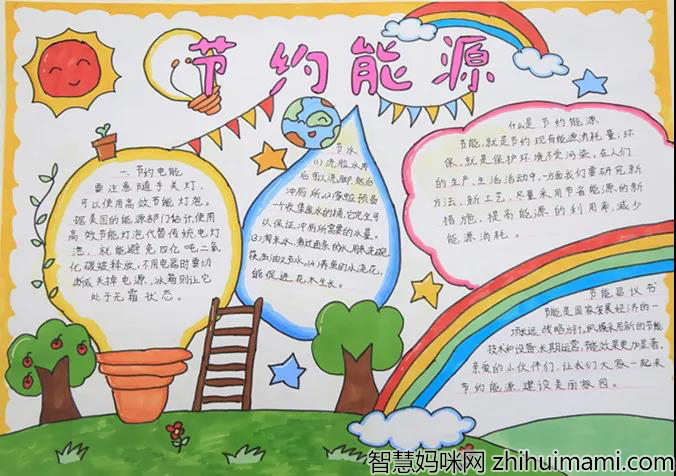 节约能源
一、节约电能
要注意随手关灯,
可以使用高效节能灯泡。
据美国的能源部门估计,使用
高效节能灯泡代替传统电灯
泡,就能避免四亿吨二氧
化碳被释放,不用电器时要切
断或关掉电源,冰箱别让它
处于无霜状态。
节水
(1)洗脸水用
后可以洗脚,然后
冲厕所。(2)家里预备
一个收集废水的桶,它完全可
以保证冲厕所需要的水量。
(3)淘米水、煮过面条的水,用来洗碗
筷,去油又节水。(4)养鱼的水浇花,
能促进花木生长。
什么是节约能源
节能,就是节约现有能源消耗量;环
保,就是保护环境不受污染。在人们
的生产、生活活动中,一方面我们要研究新
方法、新工艺,尽量采用节省能源的新
措施,提高能源的利用率,减少
能源消耗。
节能倡议书
节能是国家发展经济的一
项长远战略方针,积极采用新的节能
技术和设备,长期运营,节能效果更加显著。
亲爱的小伙伴们,让我们大家一起来
节约能源,建设美丽校园。
智慧妈咪网 zhihuimami.com